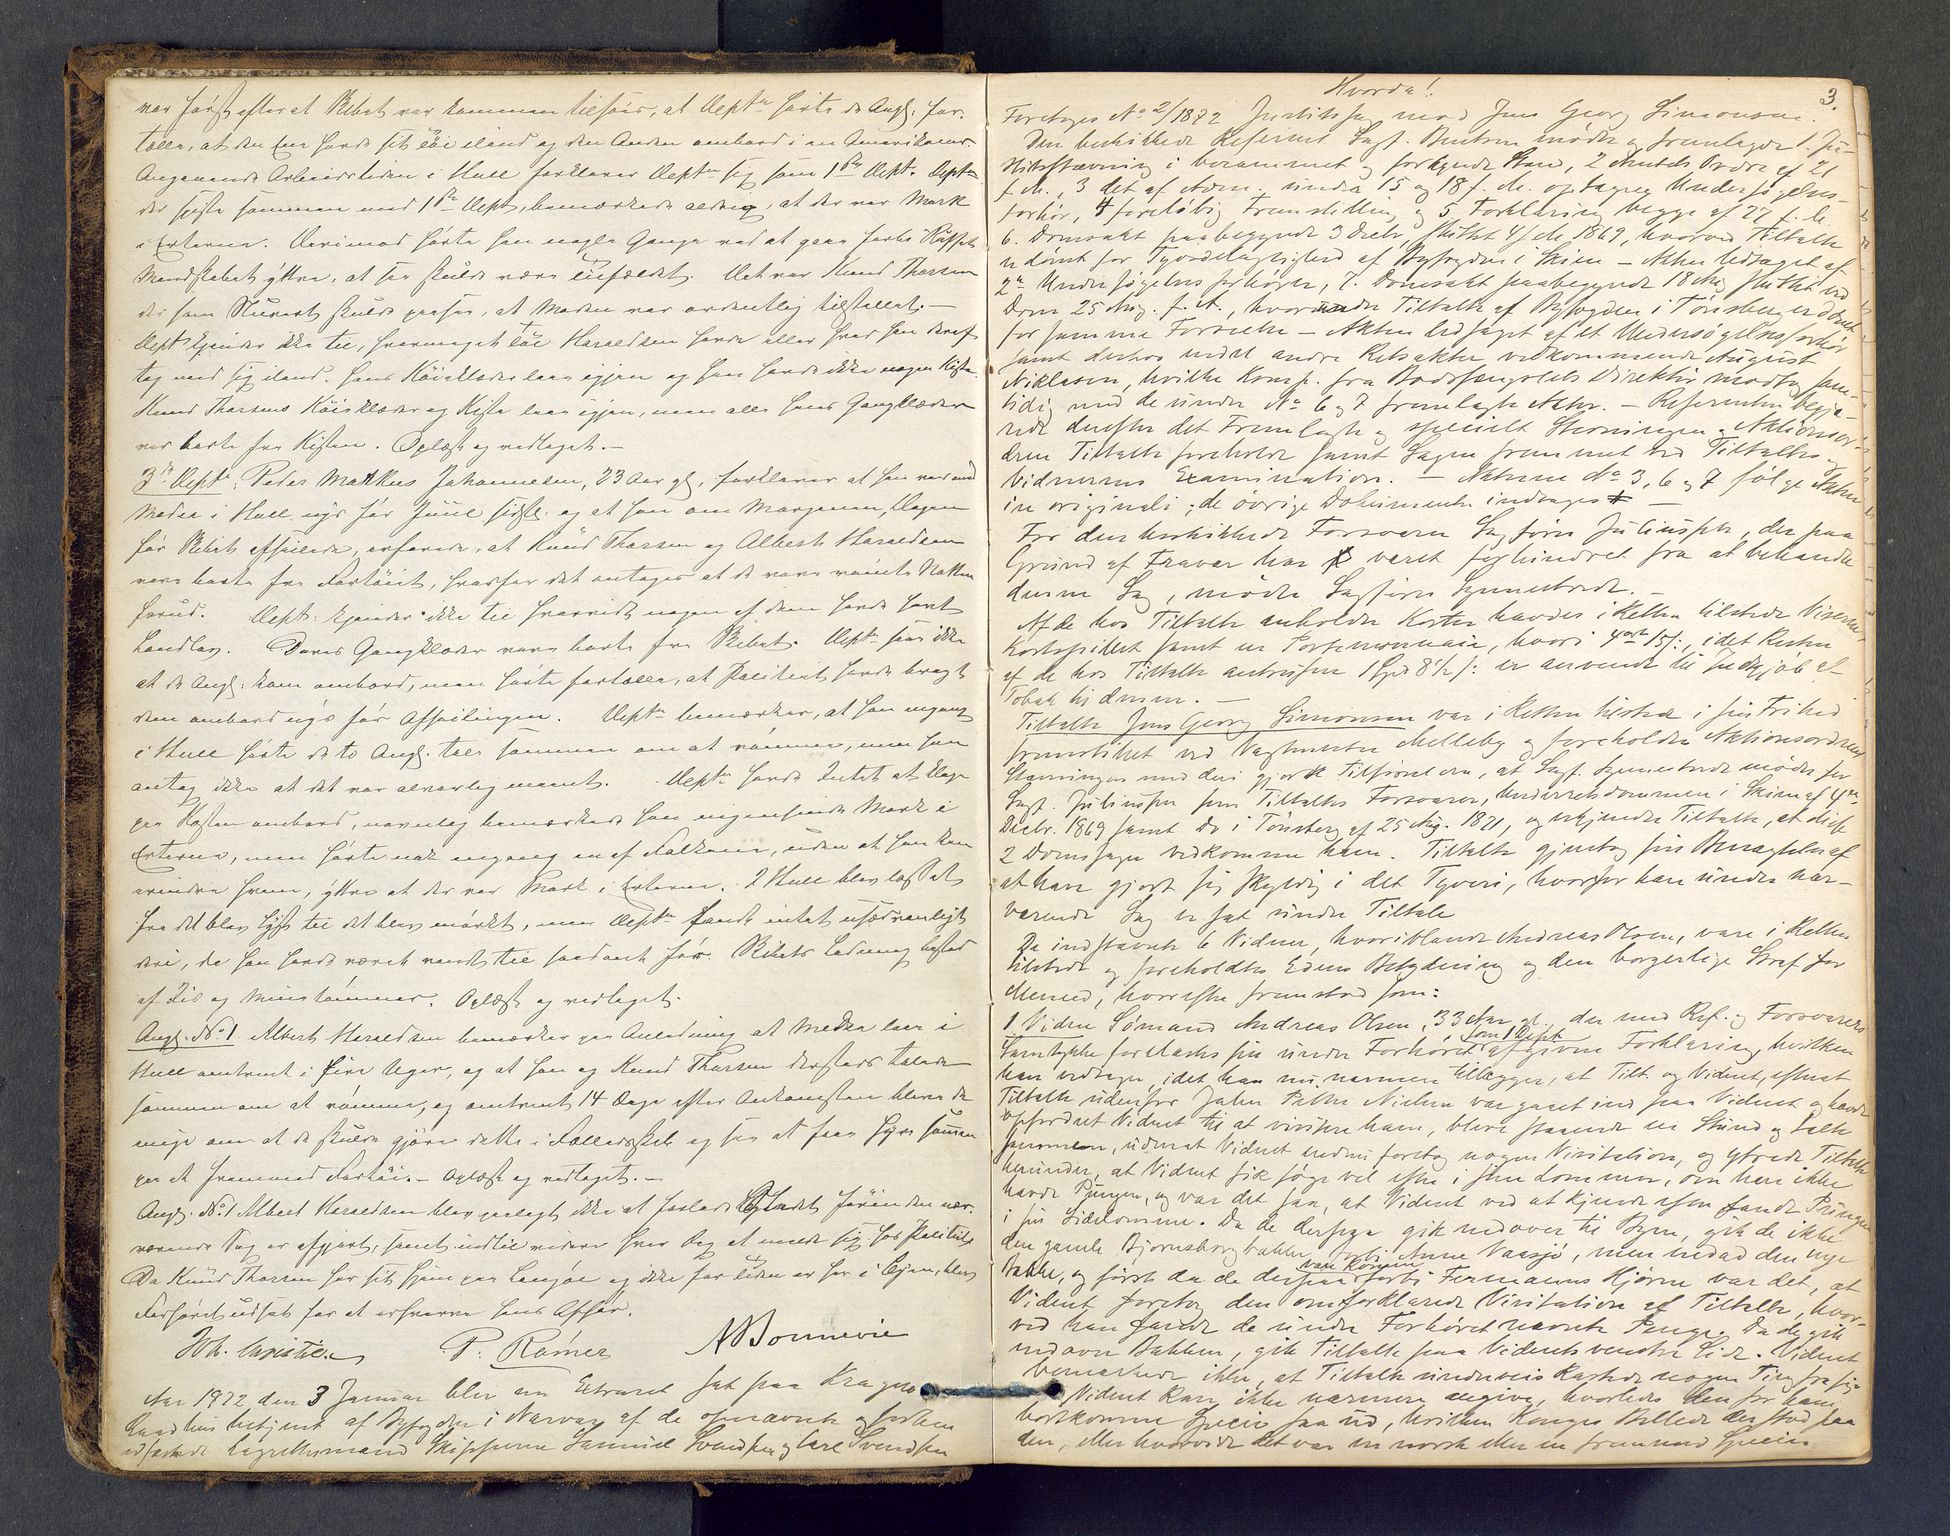 var først efter at Ribet var kommen tilsøes, at Depten hørte de Angl. for-
tælle, at den Ene havde sit Töi iland og den Anden ombord i en Amerikaner.
Angaaende Arbeidstiden i Hull forklarer Depten sig som 1ste Dept. Depten
der spiste sammen med 1ste Dept, bemærkede aldrig, at der var Mark
i Erterne. Derimod hørte han nogle Gange ved at gaa forbi
Mandskabet yttre, at de skulde være Det var Knud Thorsen
der som Stuert skulde passe, at Maden var ordentlig tilstellet.—
Depten kjender ikke til, hvormeget Töi Haraldsen havde eller hvad han deraf
tog med sig iland. Hans Köieklæder laae igjen og han havde ikke nogen Kiste.
Knud Thorsens Köieklæder og Kiste laae igjen, men alle hans Gangklæder
var borte fra Kisten. Oplæst og vedtaget.—
3die Dept. Peder Markus Johannesen, 23 Aar gl., forklarer at han var med
Meden i Hull nys før Juul sidstl. og at han om Morgenen Dagen
før Ribet afseilede, erfarede, at Knud Thorsen og Albert Haraldsen
vare borte fra Fartöiet, hvorfor det antages at de vare rømte Natten
forud. Dept. kjender ikke til hvorvidt nogen af dem havde havt
Landlov. Deres Gangklæder vare borte fra Ribet. Depten saa ikke
at de Angl. kom ombord, men hørte fortælle, at Politiet havde bragt
dem ombord nys før Afseilingen. Depten bemærker, at han engang
i Hull hørte de to Angl. tale sammen om at rømme, men han
antog ikke at det var alvorlig meent. Depten havde Intet at klage
paa Kosten ombord, navnlig bemærkede han ingensinde Mark i
Erterne, men hørte nok engang en af Folkene, uden at han kan
erindre hvem, yttre at der var Mark i Erterne. I Hull blev losset
fra det blev lyst til det blev mørkt, men Depten fandt intet usædvanligt
deri, da han havde været vandt til saadant før. Ribets Ladning bestod
af Iis og Minetømmer. Oplæst og vedtaget.
Angl. No 1 Albert Haraldsen bemærker paa Anledning at Meden laae i
Hull omtrent i fire Uger, og at han og Knud Thorsen dersteds talede
sammen om at rømme, og omtrent 14 Dage efter Ankomsten bleve de
enige om at de skulde gjöre dette i Fælledsskab og see at faae Hyre sammen
paa et fremmed Fartöi.— Oplæst og vedtaget.—
Angl. No 1 Albert Haraldsen blev paalagt ikke at forlade Stedet førend den nær-
værende Sag er afgjort, samt indtil videre hver Dag at melde sig hos Politiet
Da Knud Thorsen har sit Hjem paa Langöe og ikke for Tiden er her i Byen, blev
Forhöret udsat for at erhverve hans Afhør.
Joh. Christie. P. Rømer A Bonnevie
Aar 1872 den 3 Januar blev en Extraret sat paa Kragerø
Raadhus betjent af Byfogden i Nærvær af de opnævnte og forhen
edfæstede Lagrettesmænd Skipperne Samuel Svendsen og Carl Svendsen
3.
Hvorda!
Foretoges No 2/1872 Justitssag mod Jens Georg Simonsen.
Den beskikkede Referent Sagf. Bentsen mødte og fremlagde 1. Ju-
stitsstævning i berammet og forkyndt Stand, 2 Amtets Ordre af 21
f. M., 3 det af Adm. under 15 og 18 f. M. optagne Undersøgelses-
forhör, 4 foreløbig Fremstilling og 5 Forklaring begge af 27 f. M.
6. Domsakt paabegyndt 3 Decbr, sluttet 4/ M. 1869, hvorved Tiltalte
er dømt for Tyvsdelagtighed af Byfogden i Skien — Akten ledsaget af
2de Undersøgelsesforhører, 7. Domsakt paabegyndt 18 Aug sluttet ved
Dom 25 Aug. f. A., hvorved Tiltalte af Byfogden i Tönsberg er dømt
for samme Forseelse — Akten ledsaget af et Undersøgelsesforhör
samt derhos endel andre Retsakter vedkommende August
Niklasen, hvilke Komp. fra Bodsfængslets Direktør modtog sam-
tidig med de under No 6 og 7 fremlagte Akter. — Referenten begjæ-
rede derefter det Fremlagte og specielt Stevningen og Aktionsor-
dren Tiltalte foreholdt samt Sagen fremmet ved Tiltaltes og
Vidnernes Examination. — Akterne No 3, 6 og 7 følge Akten
in originali; de övrige Dokumenter indtages —
For den beskikkede Forsvarer Sagförer Juliussen, der paa
Grund af Fravær har været forhindret fra at behandle
denne Sag, mødte Sagförer Synnestvedt.—
Af de hos Tiltalte anholdte Koster havdes i Retten tilstede Viserne,
Kortspillet samt en Portemonnaie, hvori 4 ort 15 s:, idet Resten
af de hos Tiltalte antrufne 1 Spd 8½ s: er anvendt til Indkjøb af
Tobak til denne. —
Tiltalte Jens Georg Simonsen var i Retten tilstede i sin Frihed
fremstillet ved Vagtmester Melleby og foreholdtes Aktionsordren
Stævningen med deri gjorte Tilførelser, at Sagf. Synnestvedt mødte for
Sagf. Juliussen som Tiltaltes Forsvarer, Underretsdommen i Skien af 4de
Decbr. 1869 samt Do i Tönsberg af 25 Aug. 1871, og erkjendte Tiltalte, at disse
2 Domssager vedkomme ham. Tiltalte gjentog sin Benægtelse af
at have gjort sig skyldig i det Tyveri, hvorfor han under nær-
værende Sag er sat under Tiltale
De indstævnte 6 Vidner, hvoriblandt Andreas Olsen, vare i Retten
tilstede og foreholdtes Edens Betydning og den borgerlige Straf for
Meened, hvorefter fremstod som:
1 Vidne Sømand Andreas Olsen, 33 Aar gl., der med Ref. og Forsvarers
Samtykke forelæstes sin under Forhöret som 1 Dept. afgivne Forklaring, hvilken
han vedtager, idet han nu nærmere tillægger, at Tilt. og Vidnet, efterat
Tiltalte udenfor John Petter Nielsen var gaaet ind paa Vidnet og havde
opfordret Vidnet til at visitere ham, bleve staaende en Stund og talte
sammen, uden at Vidnet endnu foretog nogen Visitation, og ytrede Tiltalte
herunder, at Vidnet fik søge vel efter i sine Lommer, om han ikke
havde Pungen, og var det saa, at Vidnet ved at kjende efter fandt Pungen
i sin Sidelomme. Da de derfra gik nedover til Byen, gik de ikke
den gamle Bjørnsborgbakke, forbi Anne Vaasjø, men nedad den nye
Bakke, og först da de derfra var komne forbi Fermanns Hjørne var det, at
Vidnet foretog den omforklarede Visitation af Tiltalte, hvor-
ved han fandt de under Forhöret nævnte Penge. Da de gik
nedover Bakken, gik Tiltalte paa Vidnets venstre Side. Vidnet
bemærkede ikke, at Tiltalte underveis kastede nogen Ting fra sig.
Vidnet kan ikke nærmere angive, hvorledes den for ham
bortkomne Specie saa ud, hvilken Konges Billede der stod paa
den, eller hvorvidt det var en norsk eller en fremmed Specie.